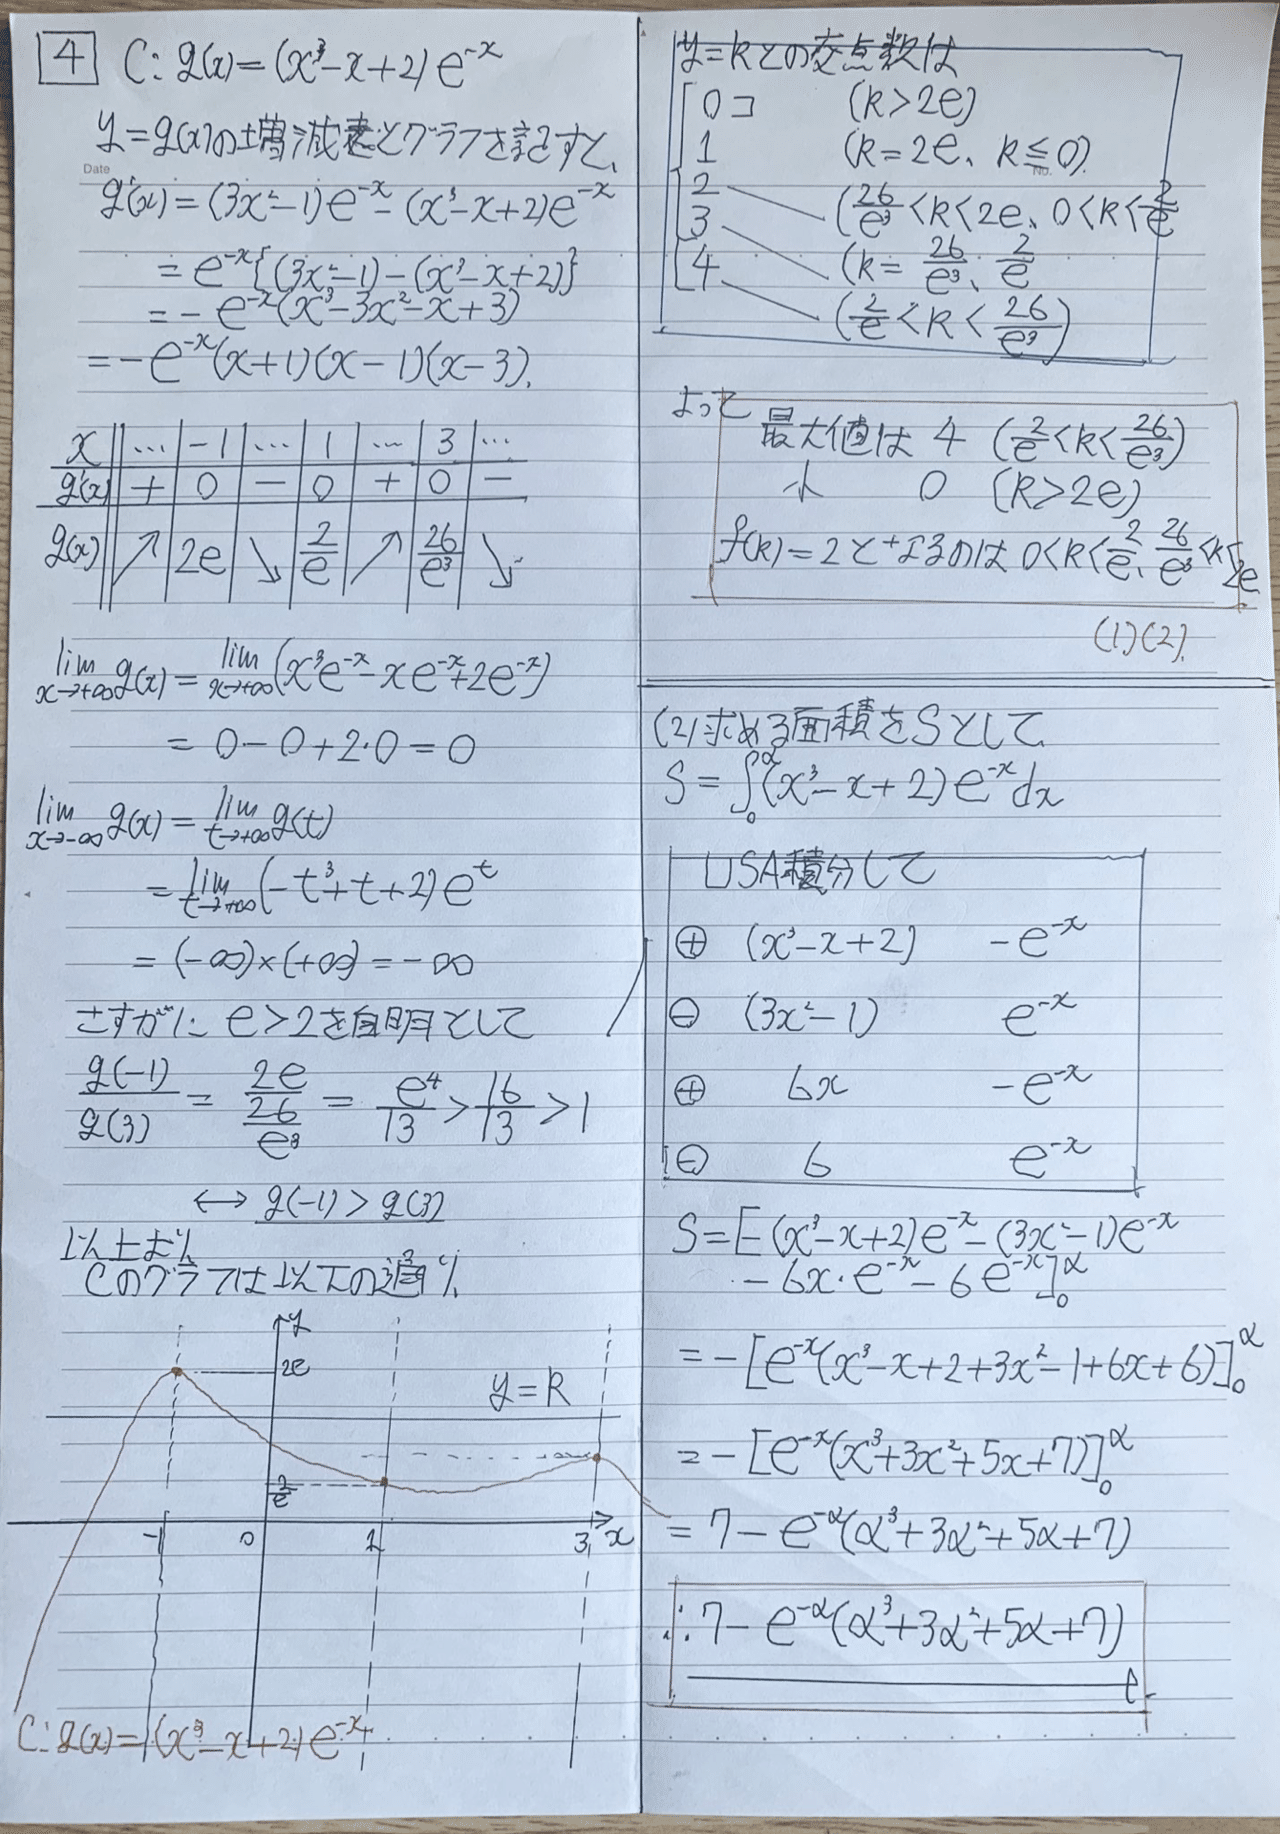 4 C: g(x)=(x³-x+2)e^{-x}
y=g(x)の増減表とグラフを記すと、
Date
g'(x)=(3x²-1)e^{-x}-(x³-x+2)e^{-x}
=e^{-x}{(3x²-1)-(x³-x+2)}
=-e^{-x}(x³-3x²-x+3)
=-e^{-x}(x+1)(x-1)(x-3).
x … -1 … 1 … 3 …
g'(x) + 0 - 0 + 0 -
g(x) ↗ 2e ↘ 2/e ↗ 26/e³ ↘
lim_{x→+∞} g(x)=lim_{x→+∞}(x³e^{-x}-xe^{-x}+2e^{-x})
=0-0+2·0=0
lim_{x→-∞} g(x)=lim_{t→+∞} g(t)
=lim_{t→+∞}(-t³+t+2)e^t
=(-∞)×(+∞)=-∞
さすがに e>2を自明として
g(-1)/g(3) = 2e/(26/e³) = e⁴/13 > 16/13 > 1
↔ g(-1)>g(3)
以上より
Cのグラフは以下の通り
y
2e
y=k
2/e
-1 0 1 3 x
C: g(x)=(x³-x+2)e^{-x}
y=kとの交点数は
No.
0コ (k>2e)
1 (k=2e、k≦0)
2 (26/e³<k<2e、0<k<2/e
3 (k=26/e³、2/e
4 (2/e<k<26/e³)
よって
最大値は 4 (2/e<k<26/e³)
小 0 (k>2e)
f(k)=2となるのは 0<k<2/e、26/e³<k<2e
(1)(2)
(2)求める面積をSとして
S=∫₀^α(x³-x+2)e^{-x}dx
USA積分して
⊕ (x³-x+2) -e^{-x}
⊖ (3x²-1) e^{-x}
⊕ 6x -e^{-x}
⊖ 6 e^{-x}
S=[-(x³-x+2)e^{-x}-(3x²-1)e^{-x}
-6x·e^{-x}-6e^{-x}]₀^α
=-[e^{-x}(x³-x+2+3x²-1+6x+6)]₀^α
=-[e^{-x}(x³+3x²+5x+7)]₀^α
=7-e^{-α}(α³+3α²+5α+7)
∴7-e^{-α}(α³+3α²+5α+7)